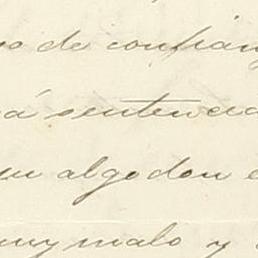 os de confianz
á sentencia
un algodon e
muy malo y